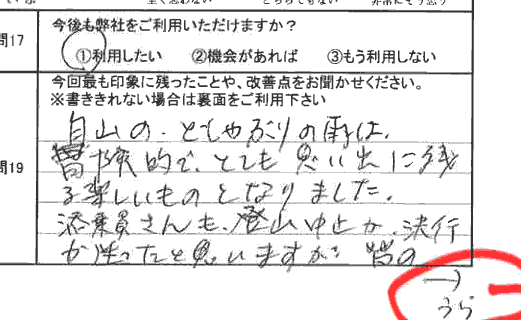 問17
今後も弊社をご利用いただけますか？
①利用したい ②機会があれば ③もう利用しない
問19
今回最も印象に残ったことや、改善点をお聞かせください。
※書ききれない場合は裏面をご利用下さい
白山の、どしゃぶりの雨は、
冒険的で、とても思い出に残
る楽しいものとなりました。
添乗員さんも、登山中止か、決行
か迷ったと思いますが、皆の
→
うら